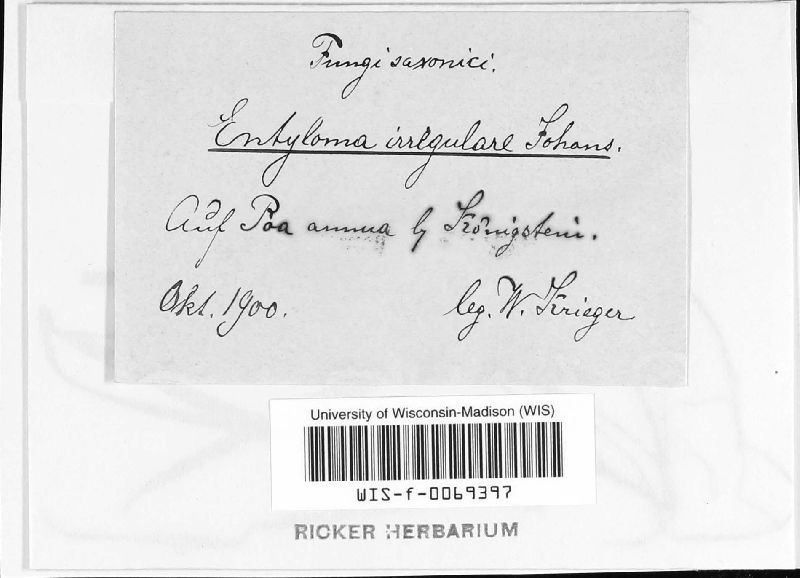 Fungi saxonici.
Entyloma irregulare Johans.
Auf Poa annua b. Königstein.
Okt. 1900.
leg. W. Krieger
University of Wisconsin-Madison (WIS)
WIS-f-0069397
RICKER HERBARIUM